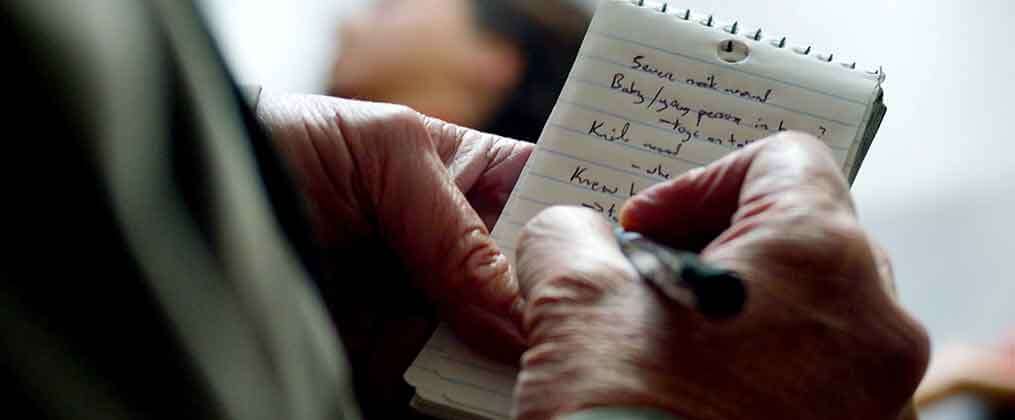 Severe neck wound
Baby/young person in h ?
→toys on ta
Knife wound
- whe
Knew h
→t